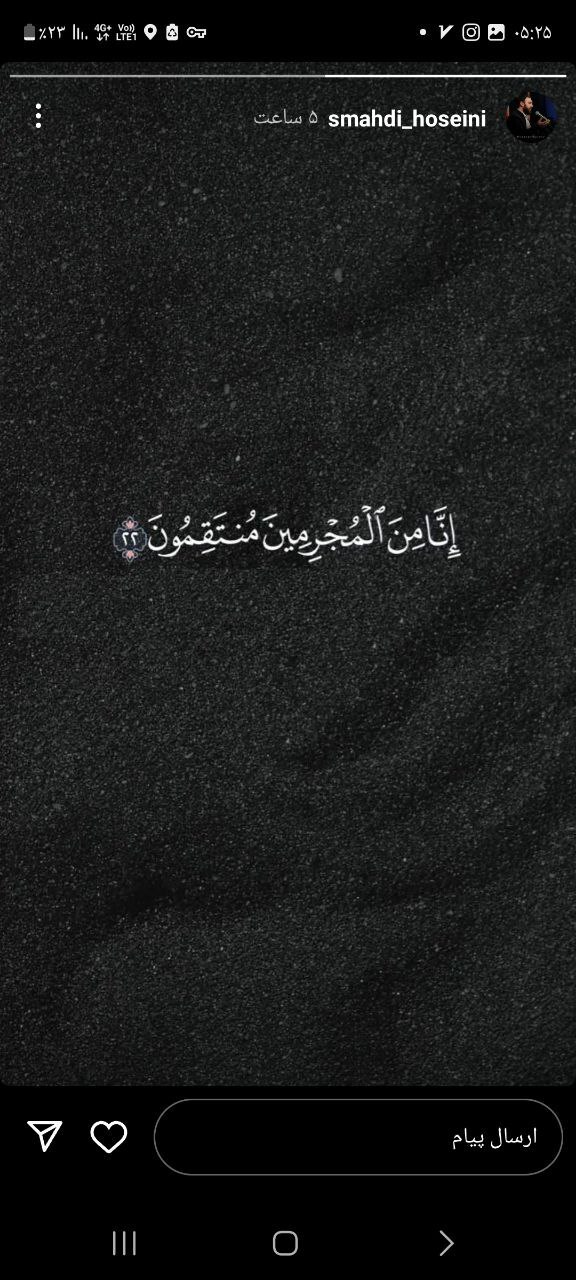 ٪۲۳ 4G+ Vo)) LTE1 ۰۵:۲۵
smahdi_hoseini ۵ ساعت
إِنَّا مِنَ ٱلْمُجْرِمِينَ مُنتَقِمُونَ ٢٢
ارسال پیام